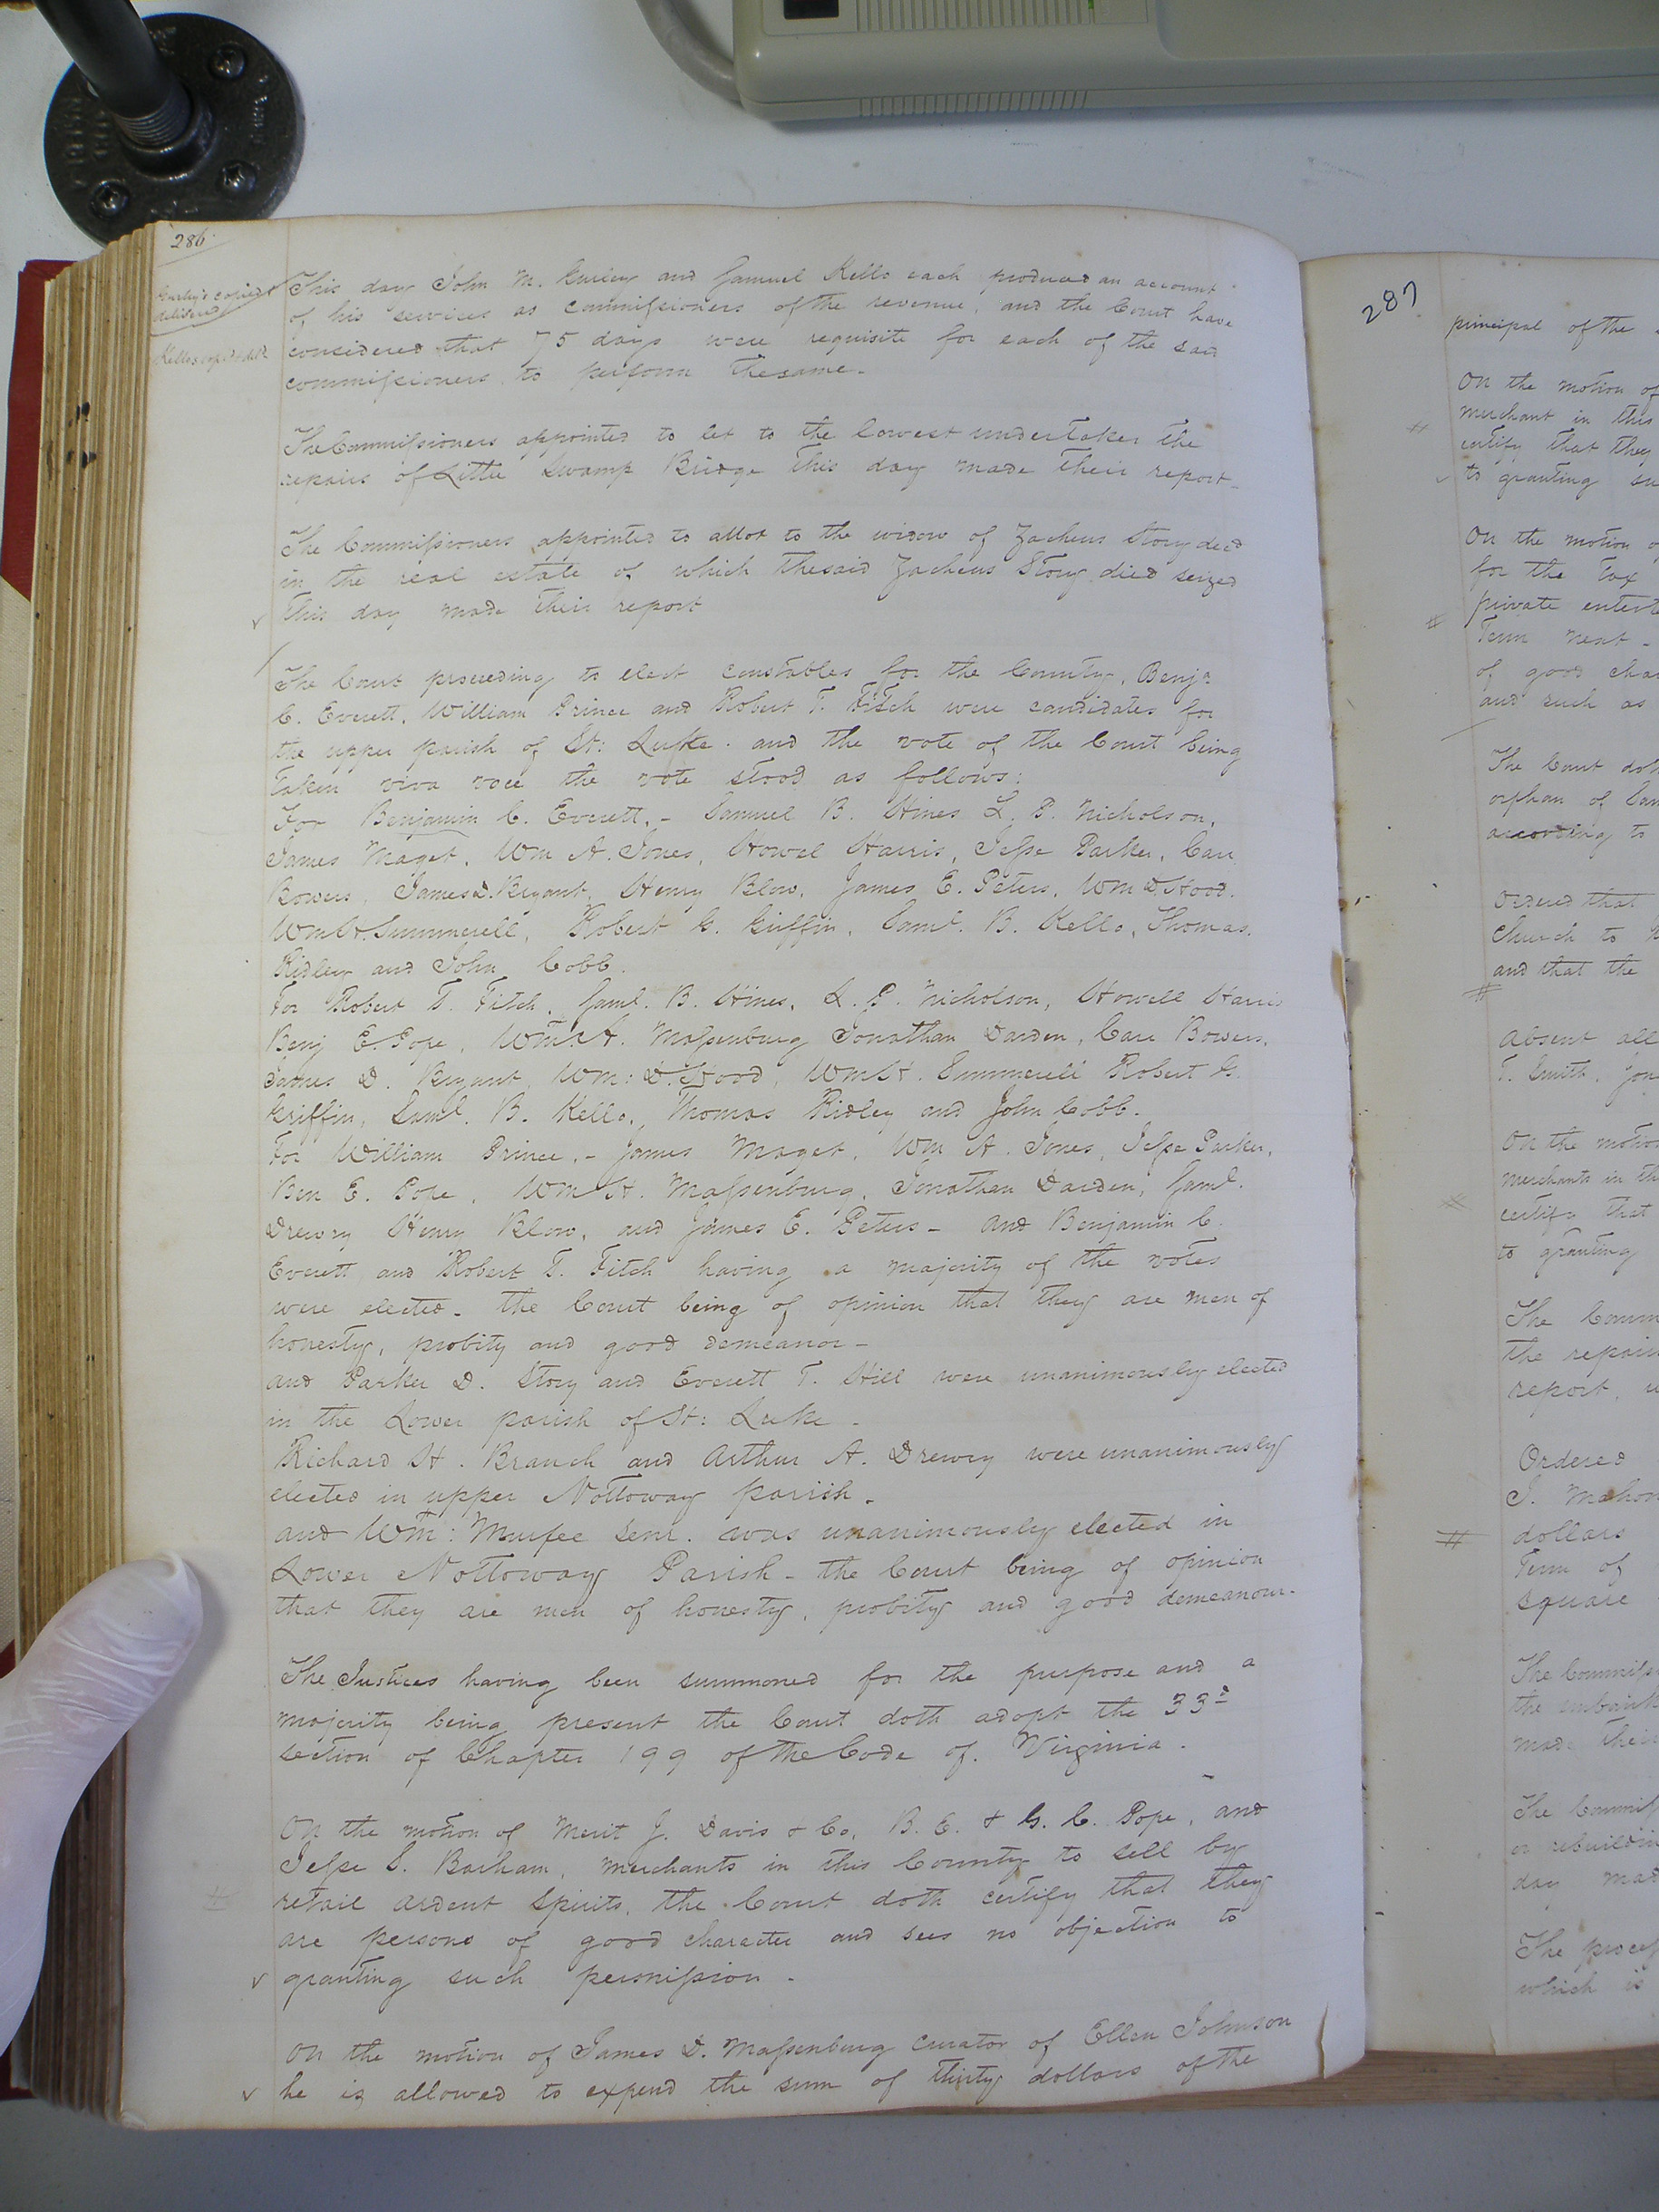 286.
Gurley's copied &
delivered
Kello's copied & deld.
This day John M. Gurley and Samuel Kello each produced an account
of his services as commissioners of the revenue, and the Court have
considered that 75 days were requisite for each of the said
commissioners to perform the same.
The Commissioners appointed to let to the lowest undertaker the
repairs of Little Swamp Bridge this day made their report
The Commissioners appointed to allot to the widow of Zacheus Story decd
in the real estate of which the said Zacheus Story died seized
this day made their report
The Court proceeding to elect constables for the County, Benja
C. Everett, William Prince and Robert T. Fitch were candidates for
the upper parish of St: Luke. and the vote of the Court being
taken viva voce the vote stood as follows:
For Benjamin C. Everett, - Samuel B. Hines L. P. Nicholson,
James Maget, Wm A. Jones, Howel Harris, Jesse Parker, Carr
Bowers, James D. Bryant, Henry Blow, James E. Peters, Wm D. Hood.
Wm H. Summerell, Robert G. Griffin, Saml. B. Kello, Thomas.
Ridley and John Cobb.
For Robert T. Fitch, Saml. B. Hines, L. P. Nicholson, Howell Harris
Benj E. Pope, Wm. H. Massenburg Jonathan Darden, Carr Bowers,
James D. Bryant, Wm: D. Hood, Wm H. Summerell Robert G.
Griffin, Saml. B. Kello, Thomas Ridley and John Cobb.
For William Prince, - James Maget, Wm A. Jones, Jesse Parker,
Ben E. Pope, Wm H. Massenburg, Jonathan Darden, Saml.
Drewry Henry Blow, and James E. Peters - and Benjamin C.
Everett and Robert T. Fitch having a majority of the votes
were elected. the Court being of opinion that they are men of
honesty, probity and good demeanor -
and Parker D. Story and Everett T. Hill were unanimously elected
in the Lower parish of St: Luke -
Richard H. Branch and Arthur A. Drewry were unanimously
elected in upper Nottoway parish.
and Wm: Murfee Senr. was unanimously elected in
Lower Nottoway Parish - the Court being of opinion
that they are men of honesty, probity and good demeanour.
The Justices having been summoned for the purpose and a
majority being present the Court doth adopt the 33d
section of Chapter 199 of the Code of Virginia.
On the motion of Merit J. Davis & Co, B. E. & G. C. Pope, and
Jesse S. Barham, merchants in this County to sell by
retail ardent spirits, the Court doth certify that they
are persons of good character and sees no objection to
granting such permission.
On the motion of James D. Massenburg curator of Ellen Johnson
he is allowed to expend the sum of thirty dollars of the
287
principal of the
On the motion of
merchant in this
certify that they
to granting su
On the motion o
for the tax
private entert
Term next -
of good char
and such as
The Court doth
orphan of
according to
Ordered that
Church to
and that the
Absent all
T. Smith,
On the motion
merchants in th
certify that
to granting
The Comm
the repair
report,
Ordered
J. Mahon
dollars
Term of
square
The Commiss
the
made their
The Commiss
or rebuildin
day mad
The
which is